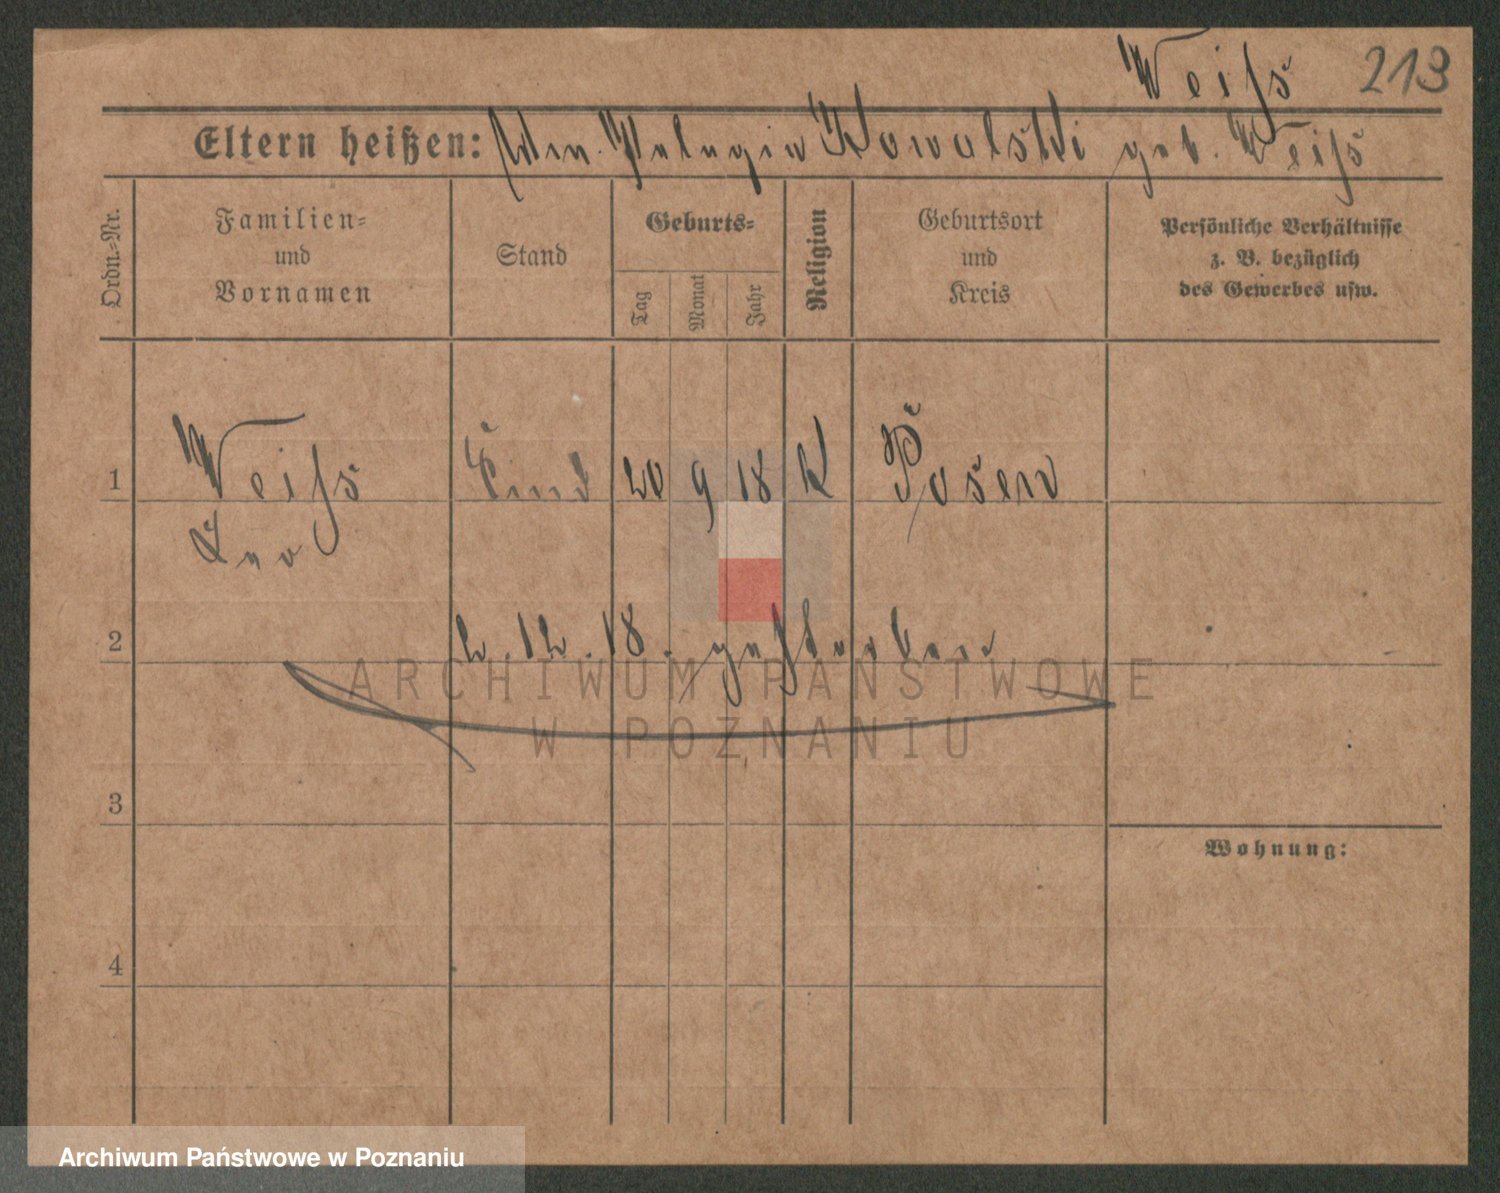 Weiß 213
Eltern heißen: Wwe. Pelagia Kowalski geb. Weiß
Ordn.-Nr.
Familien-
und
Vornamen
Stand
Geburts-
Tag
Monat
Jahr
Religion
Geburtsort
und
Kreis
Persönliche Verhältnisse
z. B. bezüglich
des Gewerbes usw.
1 Weiß Kind 20 9 18 K Posen
Leo
2 2.12.18. gestorben
ARCHIWUM PAŃSTWOWE
W POZNANIU
3
Wohnung:
4
Archiwum Państwowe w Poznaniu